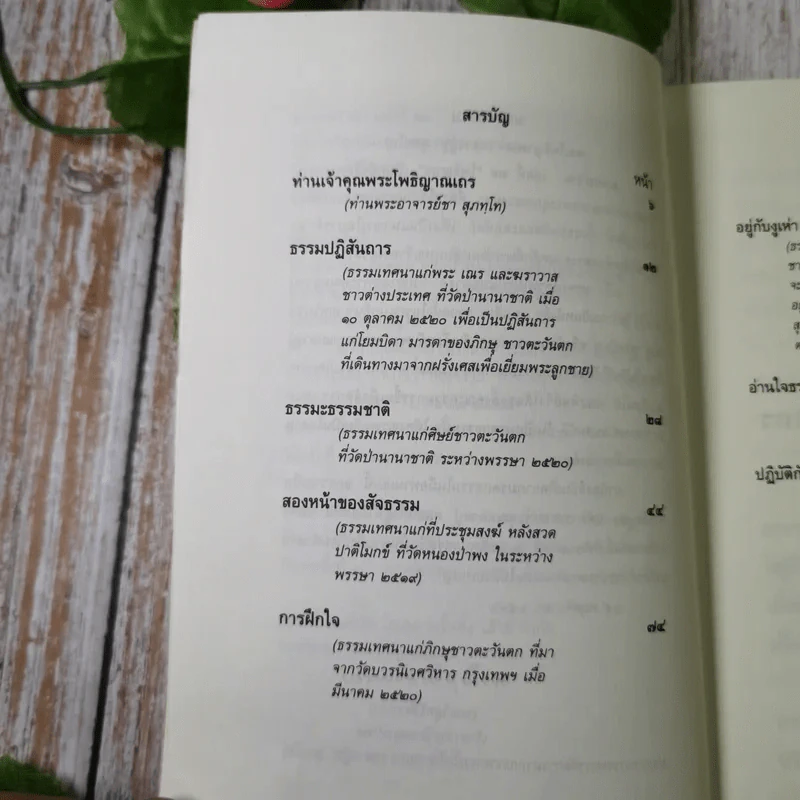 สารบัญ
หน้า
ท่านเจ้าคุณพระโพธิญาณเถร ๖
(ท่านพระอาจารย์ชา สุภทฺโท)
ธรรมปฏิสันถาร ๑๒
(ธรรมเทศนาแก่พระ เณร และฆราวาส
ชาวต่างประเทศ ที่วัดป่านานาชาติ เมื่อ
๑๐ ตุลาคม ๒๕๒๐ เพื่อเป็นปฏิสันถาร
แก่โยมบิดา มารดาของภิกษุ ชาวตะวันตก
ที่เดินทางมาจากฝรั่งเศสเพื่อเยี่ยมพระลูกชาย)
ธรรมะธรรมชาติ ๒๘
(ธรรมเทศนาแก่ศิษย์ชาวตะวันตก
ที่วัดป่านานาชาติ ระหว่างพรรษา ๒๕๒๐)
สองหน้าของสัจธรรม ๔๔
(ธรรมเทศนาแก่ที่ประชุมสงฆ์ หลังสวด
ปาติโมกข์ ที่วัดหนองป่าพง ในระหว่าง
พรรษา ๒๕๑๙)
การฝึกใจ ๗๔
(ธรรมเทศนาแก่ภิกษุชาวตะวันตก ที่มา
จากวัดบวรนิเวศวิหาร กรุงเทพฯ เมื่อ
มีนาคม ๒๕๒๐)
อยู่กับงูเห่า
อ่านใจธร
ปฏิบัติกั